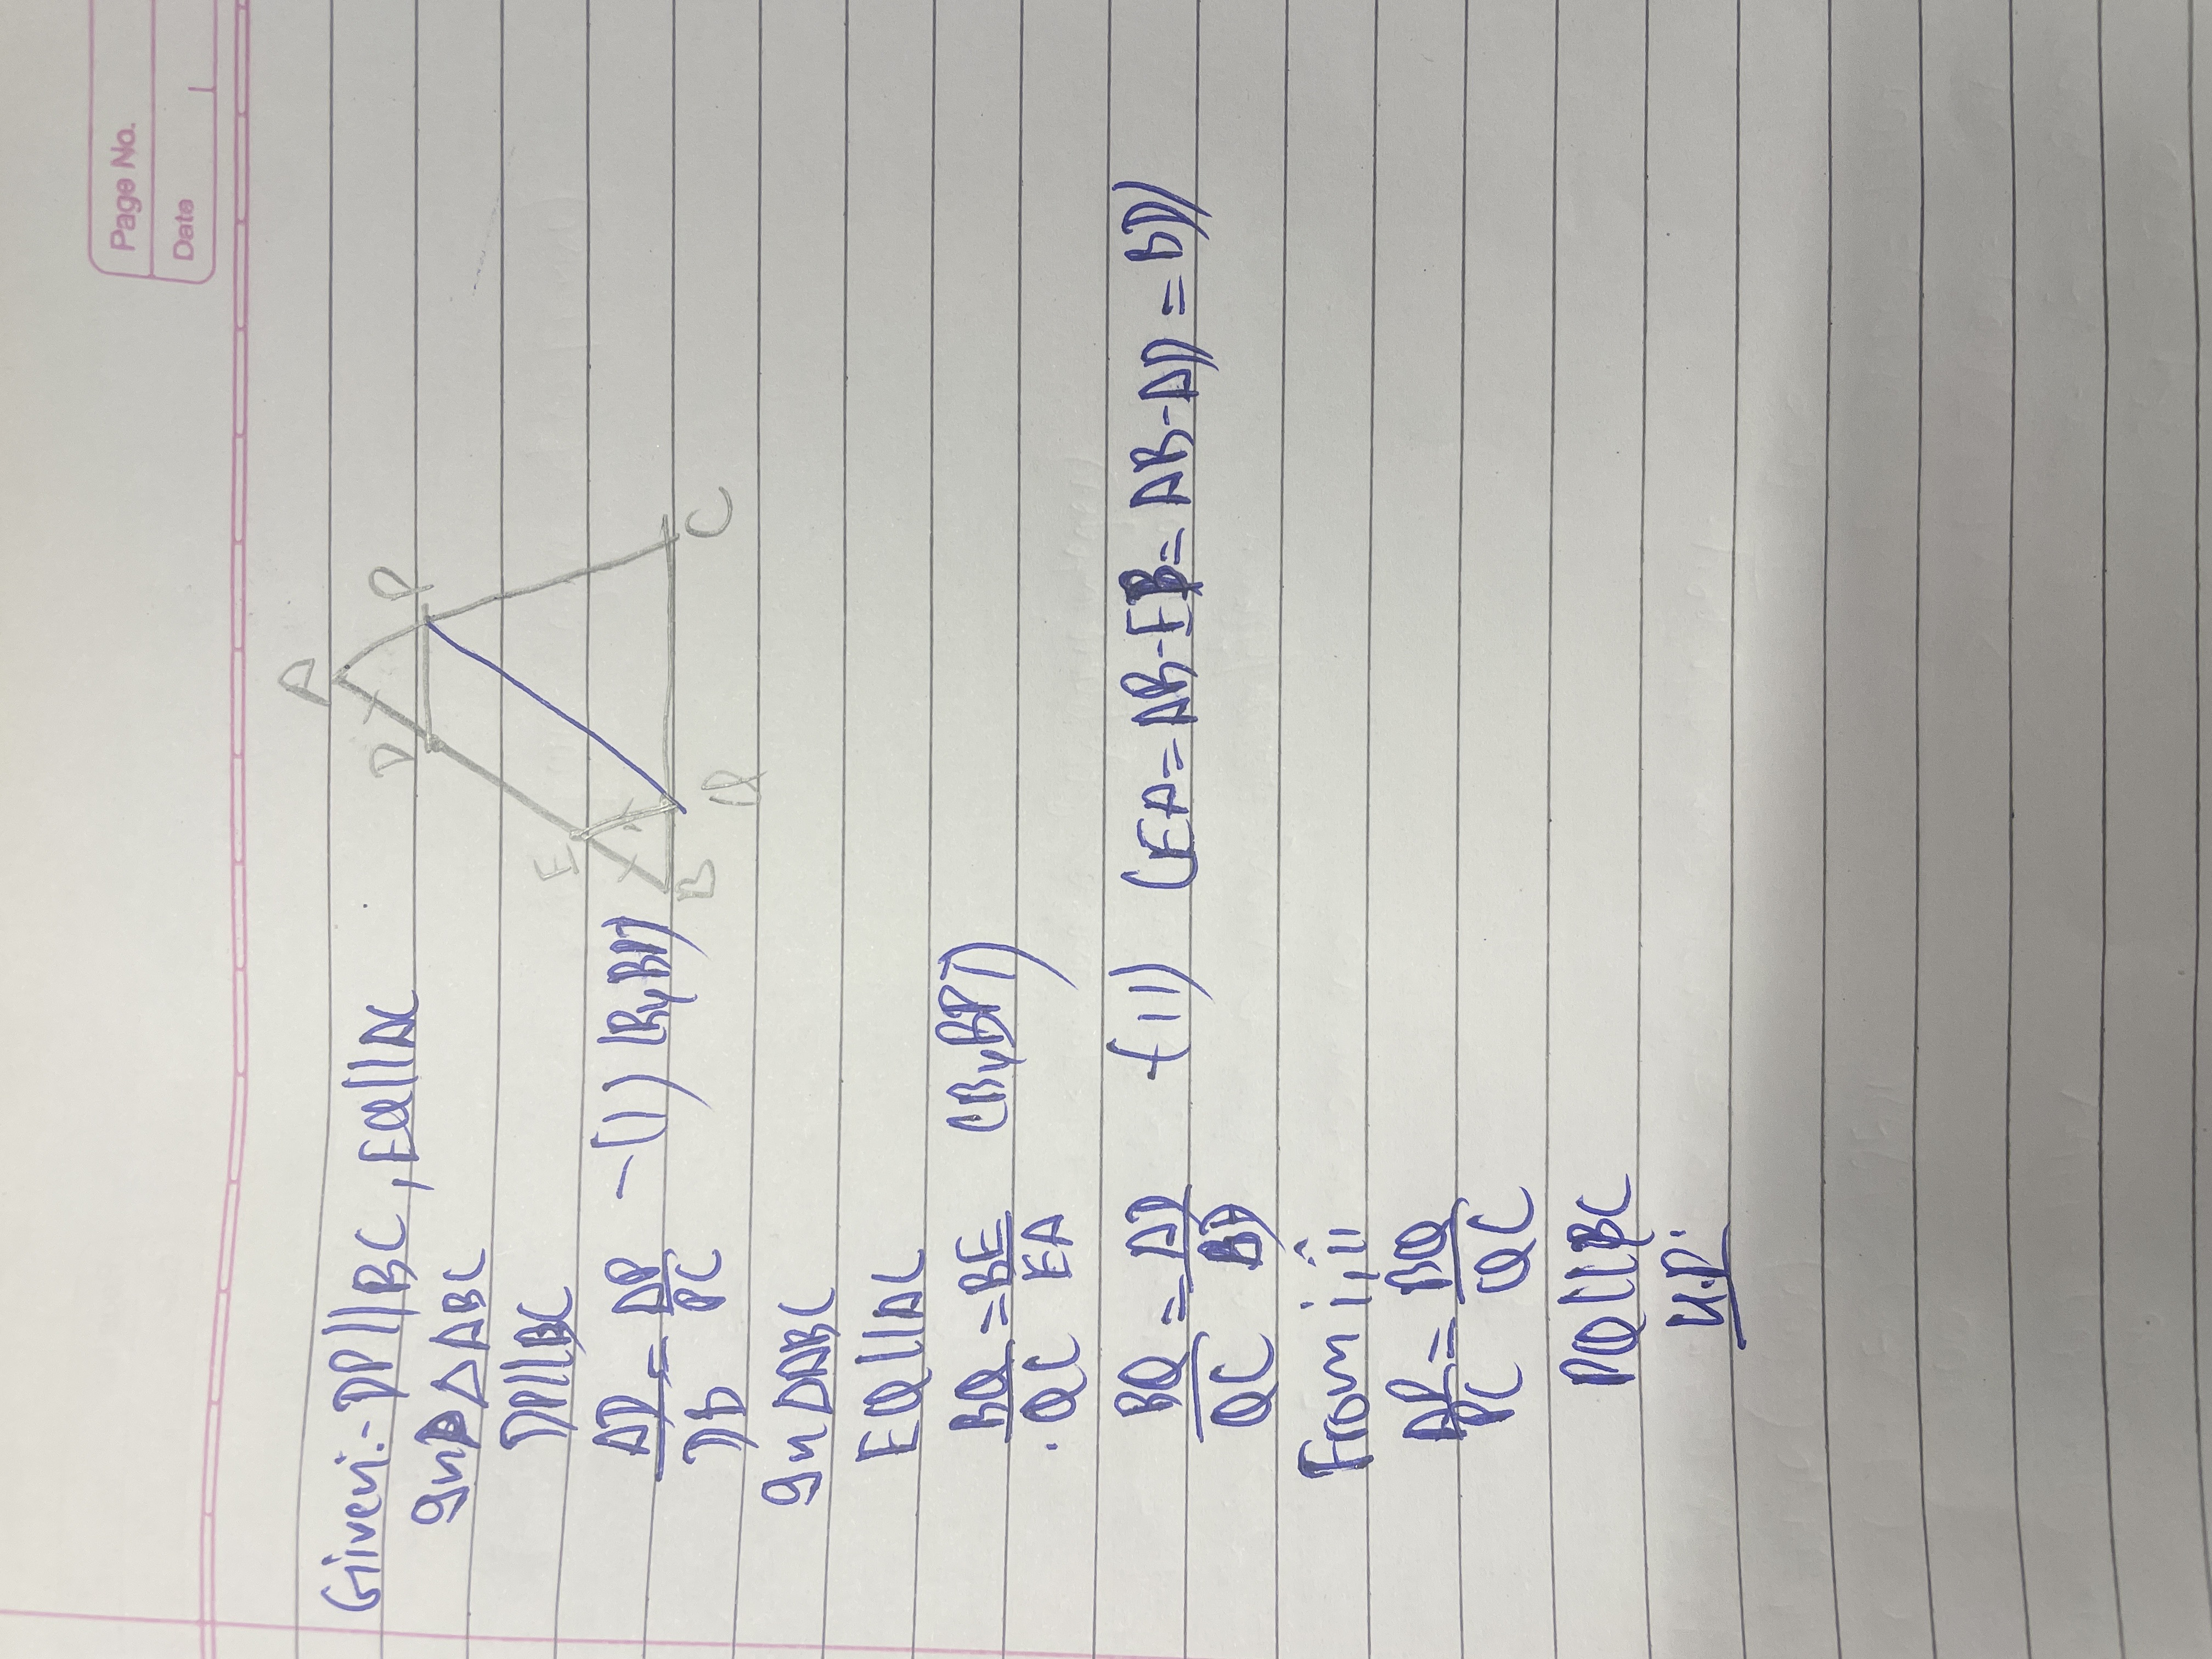 Page No.
Date
Given:- DP||BC, EQ||AC
A
D P
E
B Q C
In △ABC
DP||BC
AD/DB = AP/PC -(i) (By BPT)
In △ABC
EQ||AC
BQ/QC = BE/EA (By BPT)
BQ/QC = AD/BD -(ii) (EA = AB-EB = AB-AD = BD)
From i, ii
AP/PC = BQ/QC
PQ||BC
H.P.